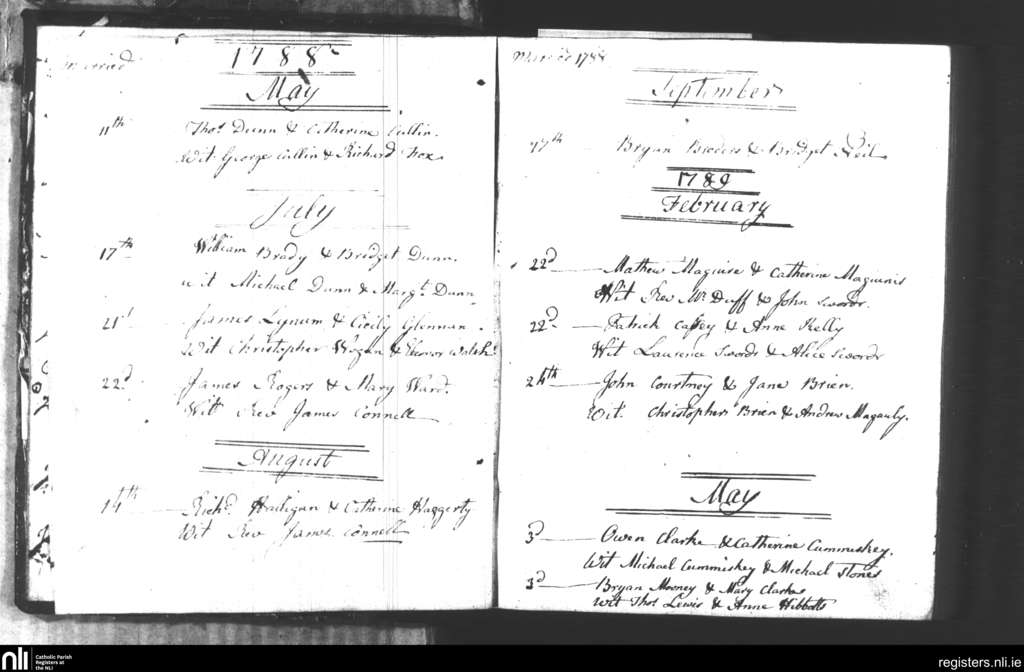 Married
1788
May
11th Thos Dunn & Catherine Cullin.
Wit George Cullin & Richard Fox
July
17th William Brady & Bridget Dunn.
wit Michael Dunn & Margt. Dunn
21st James Lynum & Cicily Glennan.
Wit Christopher Hogan & Elenor Walsh
22d James Rogers & Mary Ward.
Wit Rev James Connell
August
14th Richd Hartigan & Catherine Haggerty
Wit Rev James Connell
Married 1788
September
17th Bryan & Bridget Neil
1789
February
22d Mathew Maguire & Catherine Maguinis
Wit Rev Mr Duff & John Swords.
22d Patrick Caffey & Anne Kelly
Wit Laurence Swords & Alice Swords
24th John Courtney & Jane Brien.
Wit. Christopher Brien & Andrew Magauly.
May
3d Owen Clarke & Catherine Cummuskey.
Wit Michael Cummiskey & Michael Stones
3d Bryan Mooney & Mary Clarke
Wit Thos Lewis & Anne Hibbotts
nli Catholic Parish
Registers at
the NLI
registers.nli.ie